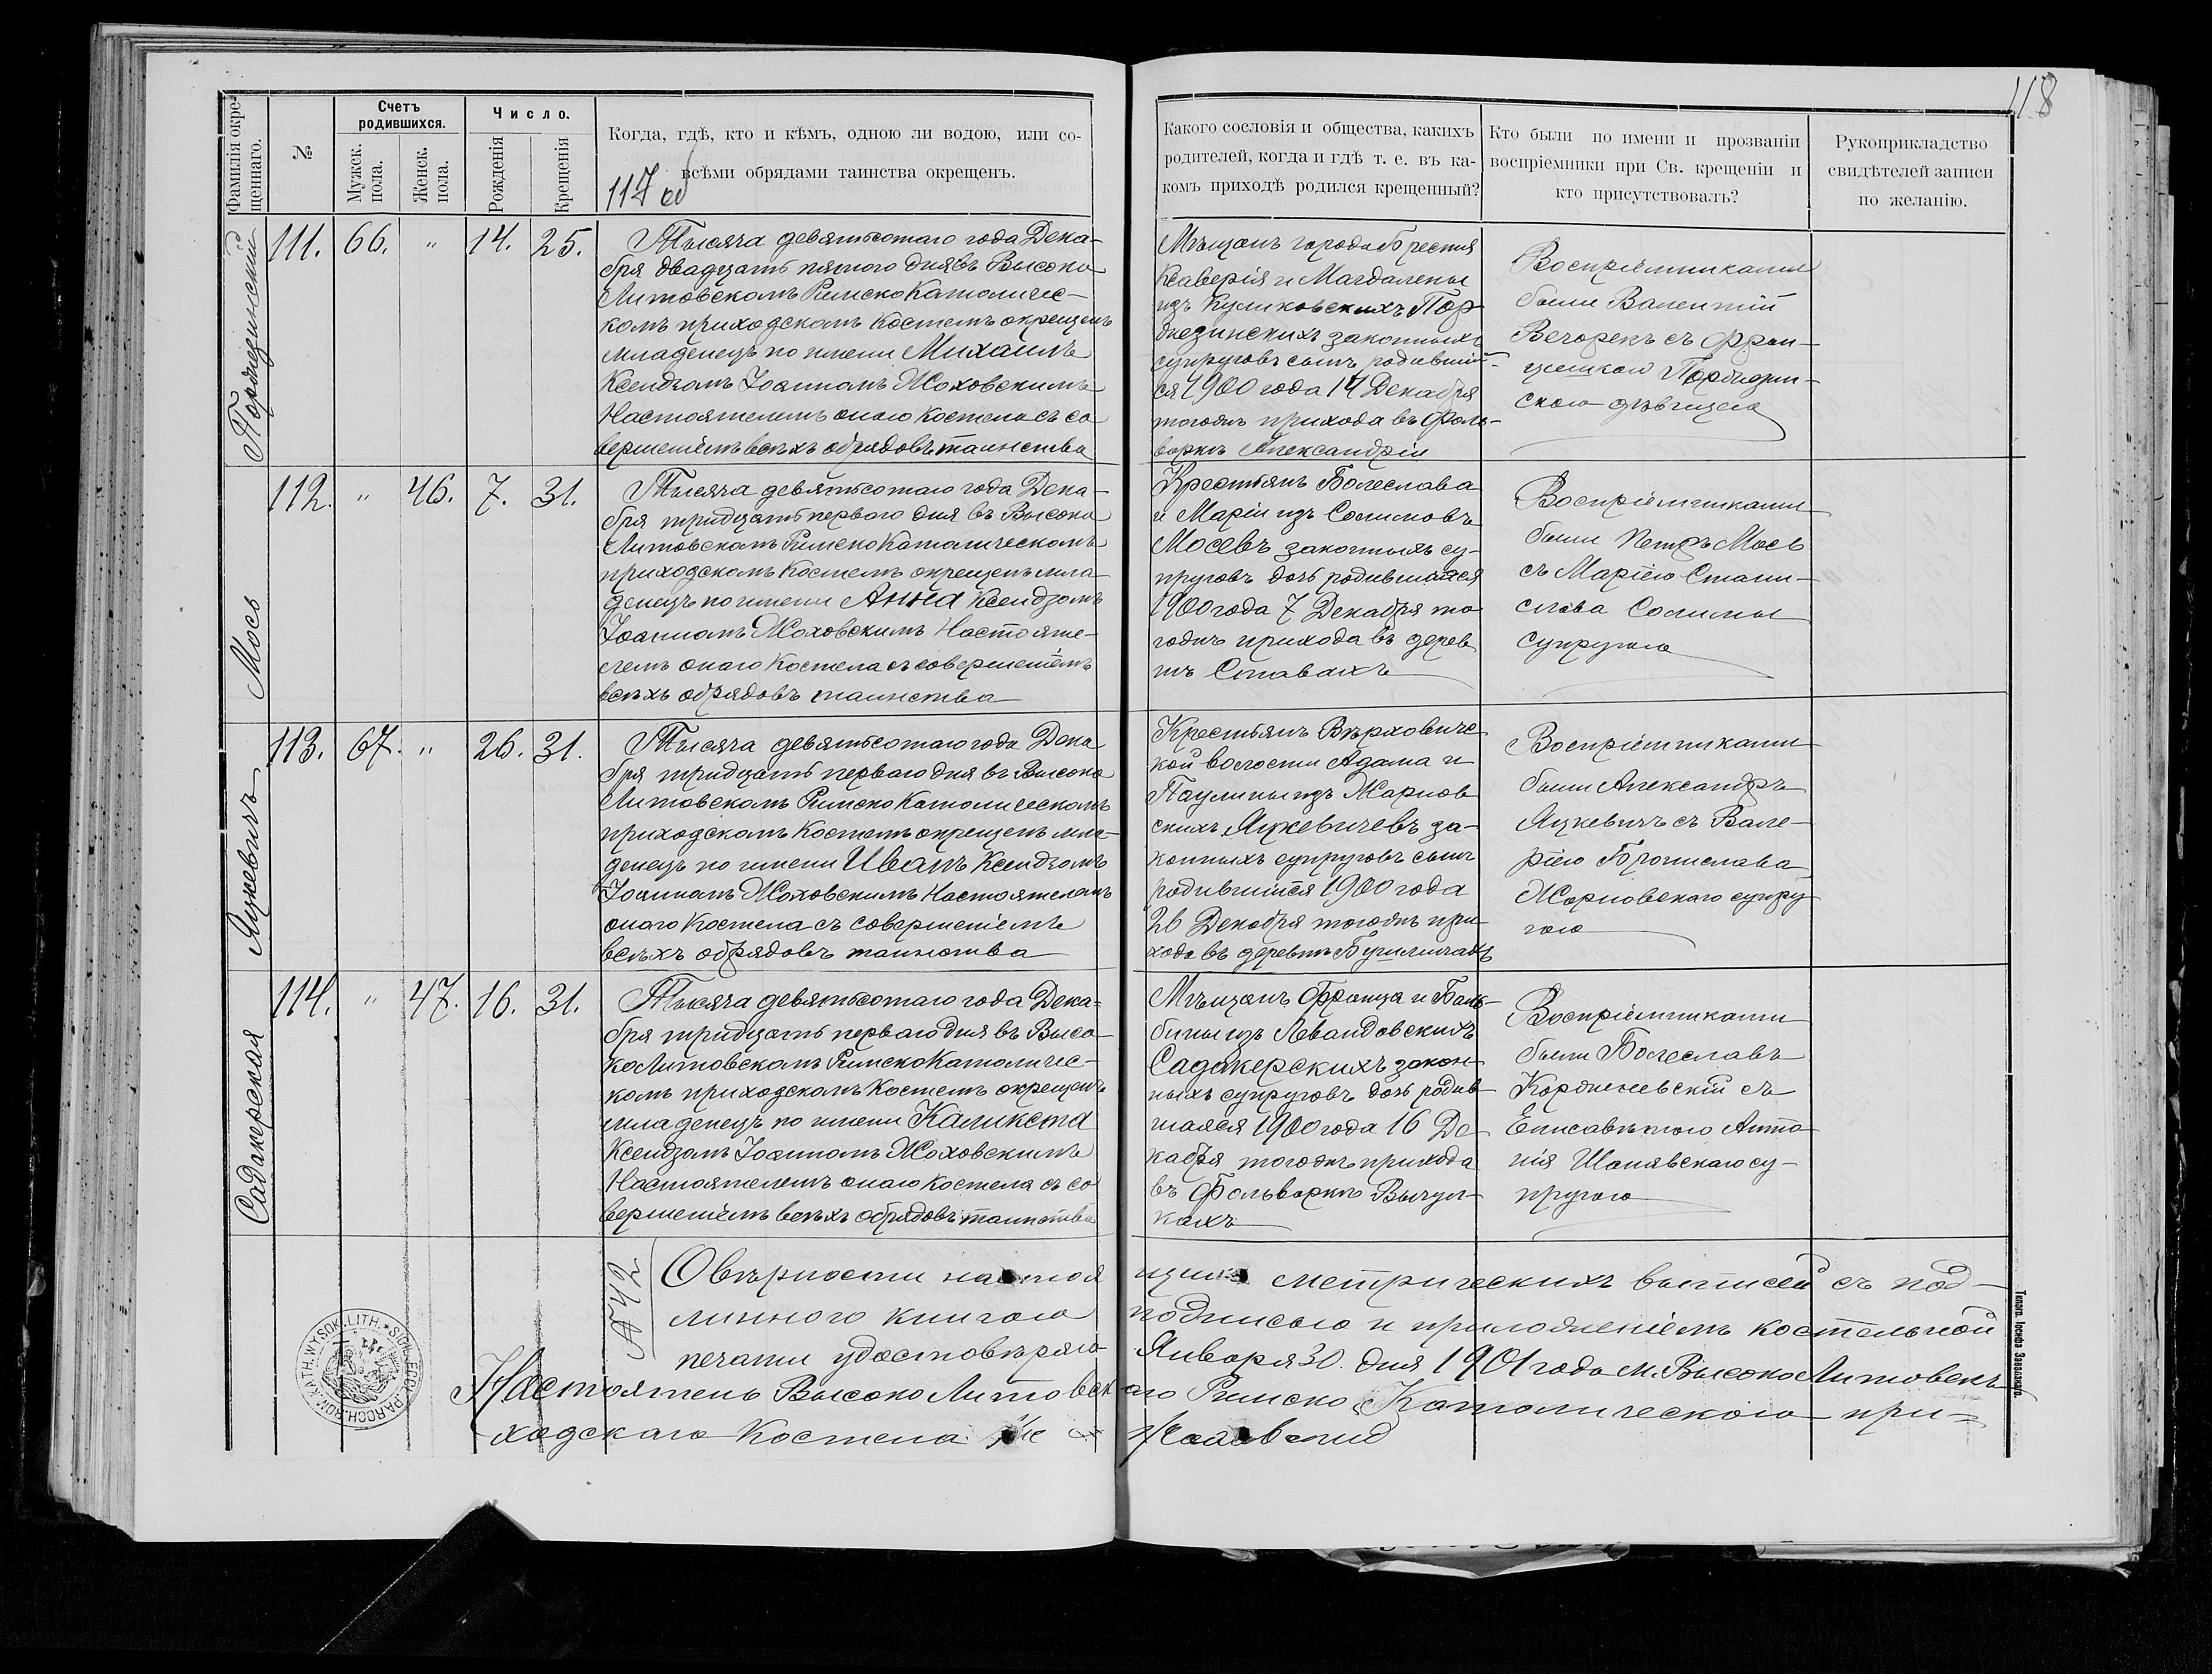 118
Фамилія окре-
щеннаго.
№
Счетъ
родившихся.
Мужск.
пола.
Женск.
пола.
Число.
Рожденія
Крещенія
Когда, гдѣ, кто и кѣмъ, одною ли водою, или со-
всѣми обрядами таинства окрещенъ.
117 об
Какого сословія и общества, какихъ
родителей, когда и гдѣ т. е. въ ка-
комъ приходѣ родился крещенный?
Кто были по имени и прозваніи
воспріемники при Св. крещеніи и
кто присутствовалъ?
Рукоприкладство
свидѣтелей записи
по желанію.
111. 66. " 14. 25.
Тысяча девятьсотаго года Дека-
бря двадцать пятого дня въ Высоко
Литовскомъ Римско Католичес-
комъ приходскомъ Костелѣ окрещенъ
младенецъ по имени Михаилъ
Ксендзомъ Іоанномъ Жоховскимъ
Настоятелемъ онаго Костела съ со
вершеніемъ всѣхъ обрядовъ таинства
Мѣщанъ города Бреста
Ксаверія и Магдалены
изъ Куликовскихъ Пор
законныхъ
супруговъ сынъ родившій-
ся 1900 года 14 Декабря
тогожъ прихода въ фоль-
варкѣ Александріи
Воспріемниками
были Валентій
Вечорекъ съ Фран-
цишкою
скою дѣвицею
Мось
112. " 46. 7. 31.
Тысяча девятьсотаго года Дека-
бря тридцать первого дня въ Высоко
Литовскомъ Римско Католическомъ
приходскомъ Костелѣ окрещенъ мла-
денецъ по имени Анна Ксендзомъ
Іоанномъ Жоховскимъ Настояте-
лемъ онаго Костела съ совершеніемъ
всѣхъ обрядовъ таинства
Крестьянъ Болеслава
и Маріи изъ Солимовъ
Мосевъ законныхъ су-
пруговъ дочь родившаяся
1900 года 7 Декабря то
гожъ прихода въ дерев
нѣ Ставахъ
Воспріемниками
были Петръ Мось
съ Маріею Стани-
слава Солимы
супругою
Яцкевичъ
113. 67. " 26. 31.
Тысяча девятьсотаго года Дека
бря тридцать перваго дня въ Высоко
Литовскомъ Римско Католическомъ
приходскомъ Костелѣ окрещенъ мла-
денецъ по имени Иванъ Ксендзомъ
Іоанномъ Жоховскимъ Настоятелемъ
онаго Костела съ совершеніемъ
всѣхъ обрядовъ таинства
Крестьянъ Вѣрховиче
кой волости Адама и
Паулины изъ Жарнов
скихъ Яцкевичевъ за-
конныхъ супруговъ сынъ
родившійся 1900 года
26 Декабря тогожъ при-
хода въ деревнѣ
Воспріемниками
были Александръ
Яцкевичъ съ Вале-
ріею Бронислава
Жарновскаго супру
гою
Садакерская
114. " 47. 16. 31.
Тысяча девятьсотаго года Дека-
бря тридцать перваго дня въ Высо-
ко Литовскомъ Римско Католичес-
комъ приходскомъ Костелѣ окрещенъ
младенецъ по имени Каликста
Ксендзомъ Іоанномъ Жоховскимъ
Настоятелемъ онаго Костела съ со
вершеніемъ всѣхъ обрядовъ таинства
Мѣщанъ Франца и Баль-
бины изъ Левандовскихъ
Садакерскихъ закон-
ныхъ супруговъ дочь родив-
шаяся 1900 года 16 Де
кабря тогожъ прихода
въ Фольваркѣ Вычул-
кахъ
Воспріемниками
были Болеславъ
съ
Елисаветою Анто
нія Шанявскаго су-
пругою
№ 42
О вѣрности настоя щихъ метрическихъ выписей съ под-
линного книгою подписью и приложеніемъ костельной
печати удостовѣряю Января 30 дня 1901 года м. Высоко Литовскъ
Настоятель Высоко Литовскаго Римско Католического при-
ходскаго Костела
ROM.KATH.WYSOK.LITH. * SIGIL.ECCL.PAROCH.
Типогр. Іосифа Завадзкаго.